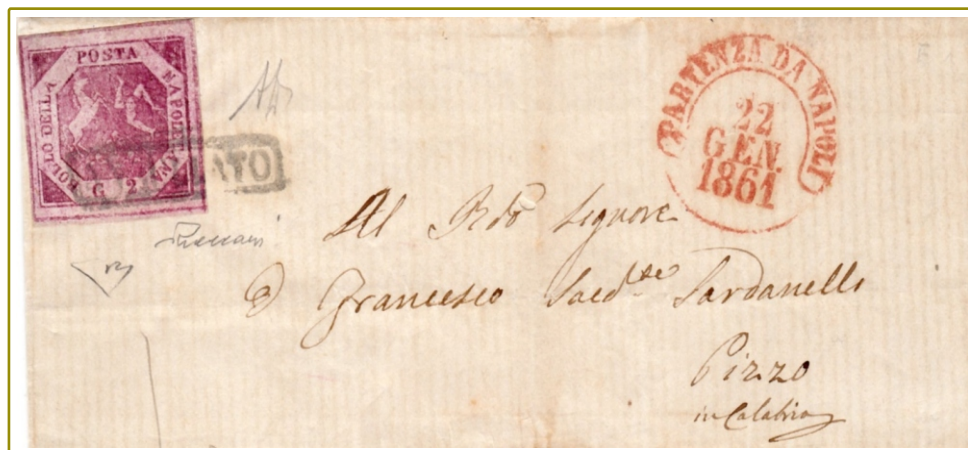 POSTA
NAPOLETANA
BOLLO DELLA
G 2
ATO
PARTENZA DA NAPOLI
22
GEN.
1861
Al Rdo Signore
D Francesco Sacd.te Sardanelli
Pizzo
in Calabria